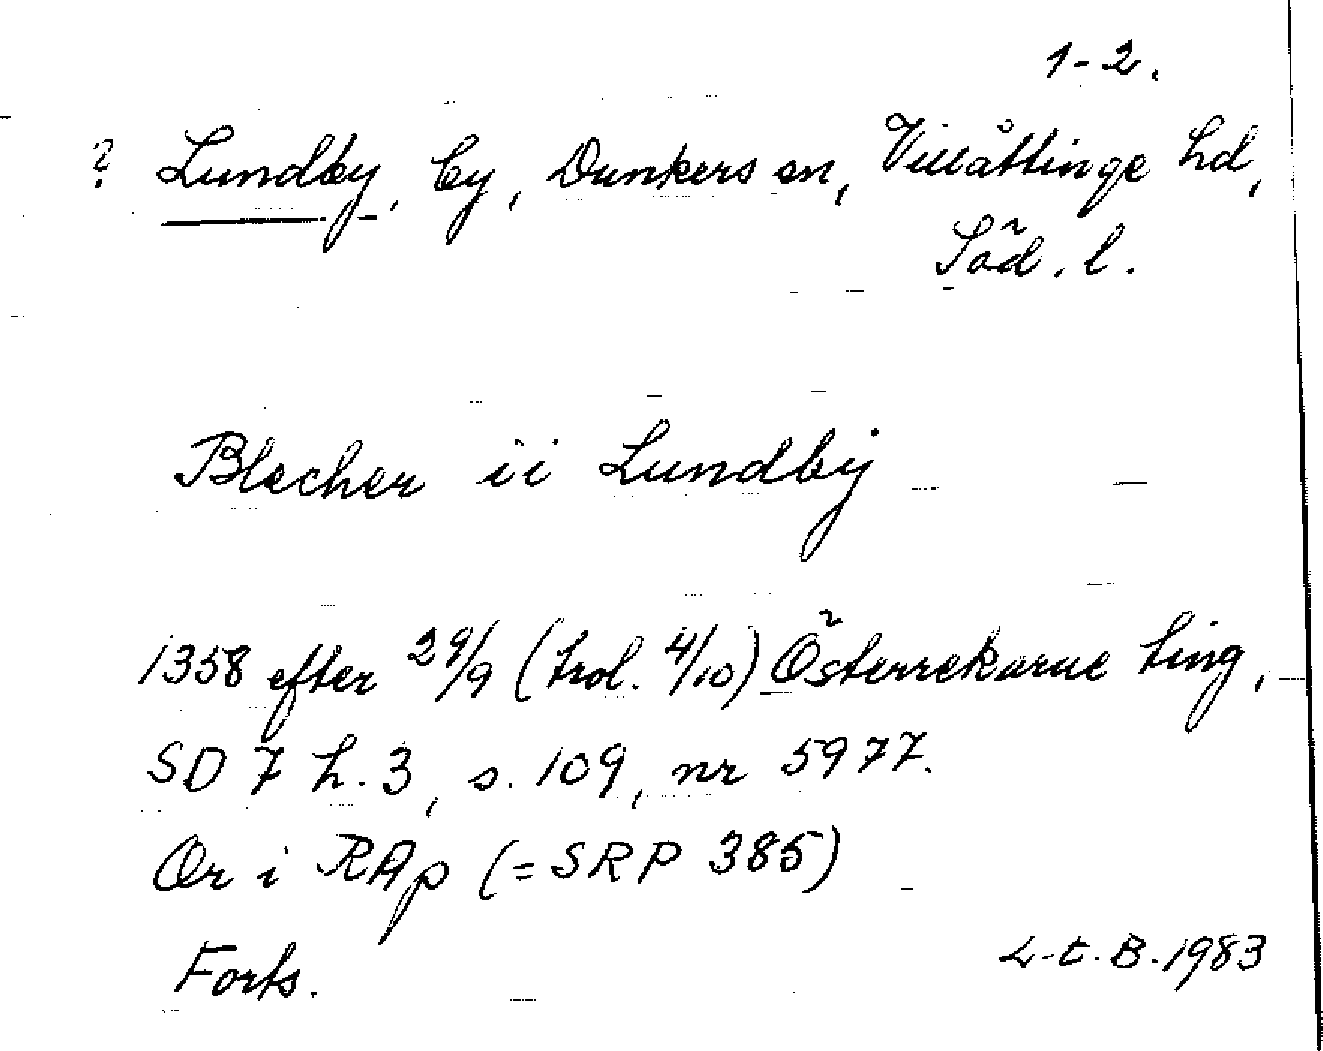 1-2.
? Lundby, by, Dunkers sn, Villåttinge hd,
Söd. l.
Blecher ii Lundbÿ
1358 efter 29/9 (trol. 4/10) Österrekarne ting,
SD 7 h. 3, s. 109, nr 5977.
Or i RAp (=SRP 385)
Forts.
L-t. B. 1983